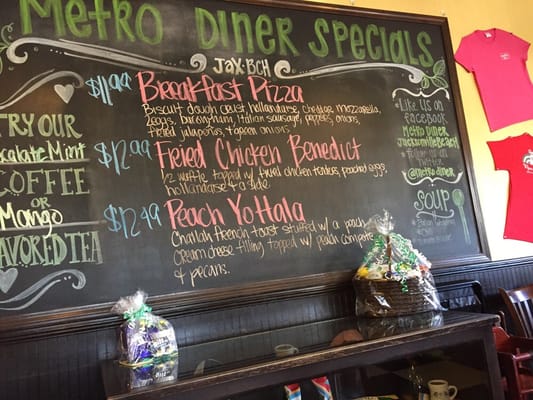 Metro Diner Specials
JAX·BCH
$11.99 Breakfast Pizza
Biscuit dough crust, hollandaise, cheddar mozzarella,
2eggs, bacon, ham, Italian sausage, peppers, onions,
fried jalapeños,
onions
$12.99 Fried Chicken Benedict
1/2 waffle topped w/ fried chicken tenders, poached eggs,
hollandaise & a side
$12.49 Peach YoHala
Challah french toast stuffed w/ a peach
cream cheese filling topped w/ peach compote
& pecans.
TRY OUR
Chocolate Mint
COFFEE
or
Mango
FLAVORED TEA
Like us on
facebook
Metro Diner
Jacksonville
Beach
Follow us
on Twitter
@metro diner
SOUP